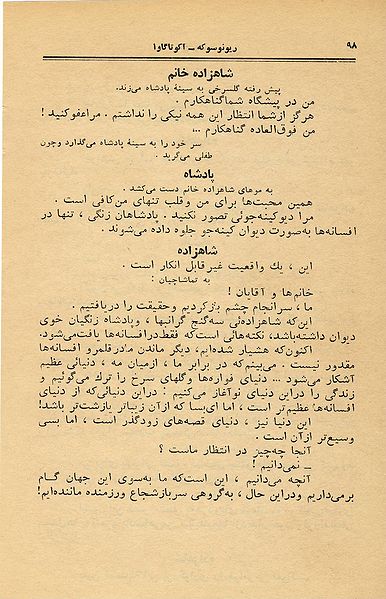 ۹۸ ریونوسوکه ــ آکوتاگاوا
شاهزاده خانم
پیش رفته گلسرخی به سینهٔ پادشاه می‌زند.
من در پیشگاه شماگناهکارم .
هرگز ازشما انتظار این همه نیکی را نداشتم . مراعفوکنید !
من فوق‌العاده گناهکارم ...
سر خود را به سینهٔ پادشاه می‌گذارد وچون
طفلی می‌گرید .
پادشاه
به موهای شاهزاده خانم دست می‌کشد .
همین محبت‌ها برای من وقلب تنهای من‌کافی است .
مرا دیوکینه‌جوئی تصور نکنید . پادشاهان زنگی ، تنها در
افسانه‌ها به‌صورت دیوان کینه‌جو جلوه داده می‌شوند .
شاهزاده
این ، یك واقعیت غیرقابل انکار است .
به تماشاچیان :
خانم‌ها و آقایان !
ما ، سرانجام چشم بازکردیم وحقیقت را دریافتیم .
این‌که شاهزاده‌ئی سه‌گنج گرانبها ، وپادشاه زنگیان خوی
دیوان داشته‌باشد، نکته‌هائی است‌که فقط‌درافسانه‌ها یافت‌می‌شود.
اکنون‌که هشیار شده‌ایم، دیگر ماندن مادرقلمرو افسانه‌ها
مقدور نیست . می‌بینم‌که در برابر ما ، ازمیان مه ، دنیائی عظیم
آشکار می‌شود ... دنیای فواره‌ها وگلهای سرخ را ترك می‌گوئیم و
زندگی را دراین دنیای نوآغاز می‌کنیم : دراین دنیائی‌که از دنیای
افسانه‌ها عظیم‌تر است ، اما ای‌بسا که ازآن زیباتر یازشت‌تر باشد!
این دنیا نیز ، دنیای قصه‌های زودگذر است ، اما بسی
وسیع‌تر ازآن است .
آنجا چه‌چیز در انتظار ماست ؟
ــ نمی‌دانیم !
آنچه می‌دانیم ، این است‌که ما به‌سوی این جهان گام
برمی‌داریم ودراین حال ، به‌گروهی سربازشجاع ورزمنده ماننده‌ایم!